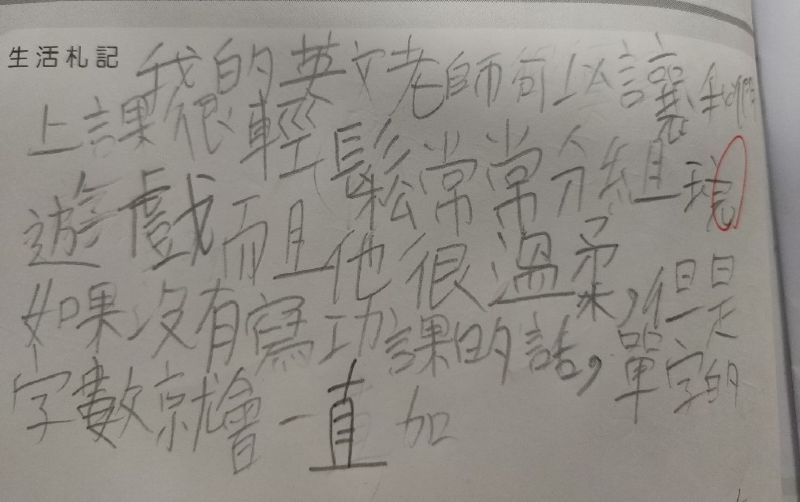 生活札記
我的英文老師可以讓我們
上課很輕鬆常常分組玩
遊戲而且他很溫柔,但是
如果沒有寫功課的話,單字的
字數就會一直加